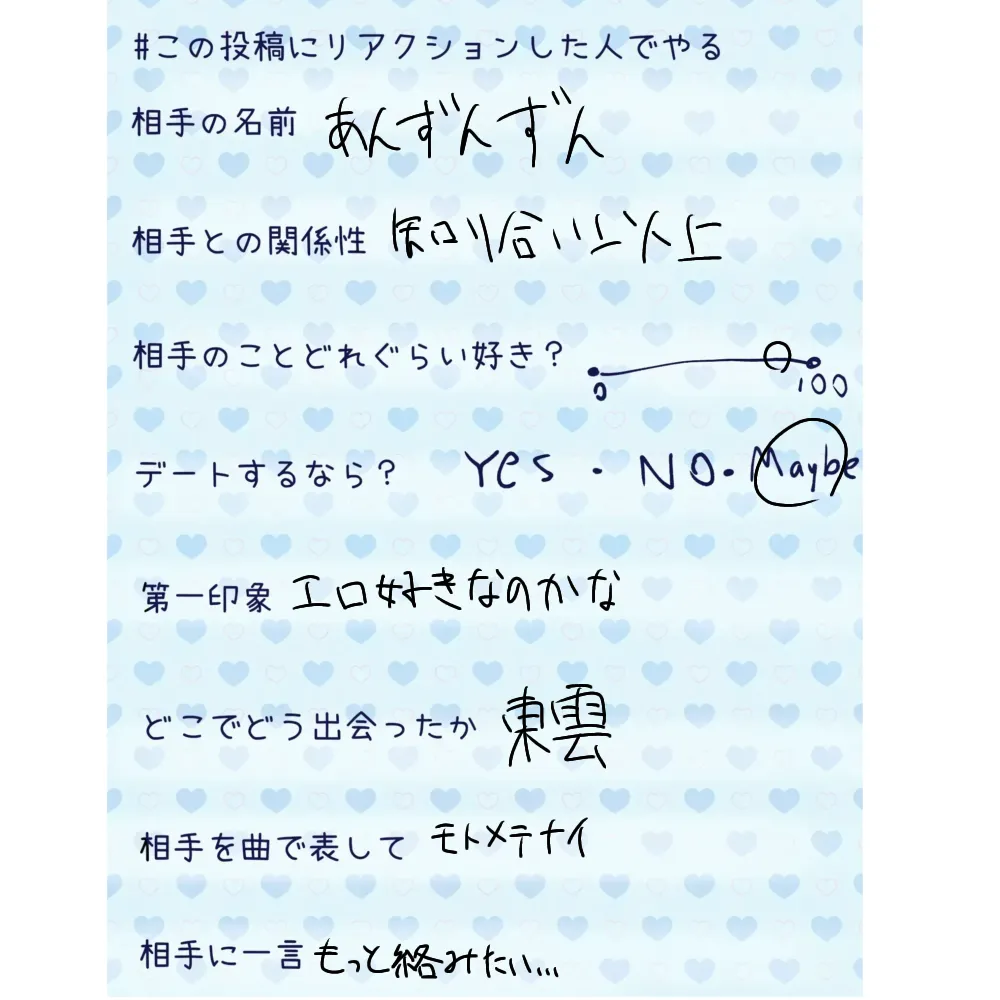 #この投稿にリアクションした人でやる
相手の名前 あんずんずん
相手との関係性 知り合い以上
相手のことどれぐらい好き？ 0 100
デートするなら？ Yes ・ NO ・ Maybe
第一印象 エロ好きなのかな
どこでどう出会ったか 東雲
相手を曲で表して モトメテナイ
相手に一言 もっと絡みたい...